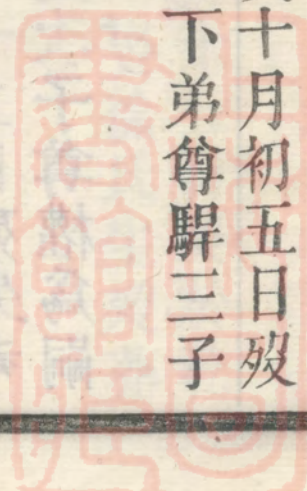 十月初五日歿
下弟尊駻三子